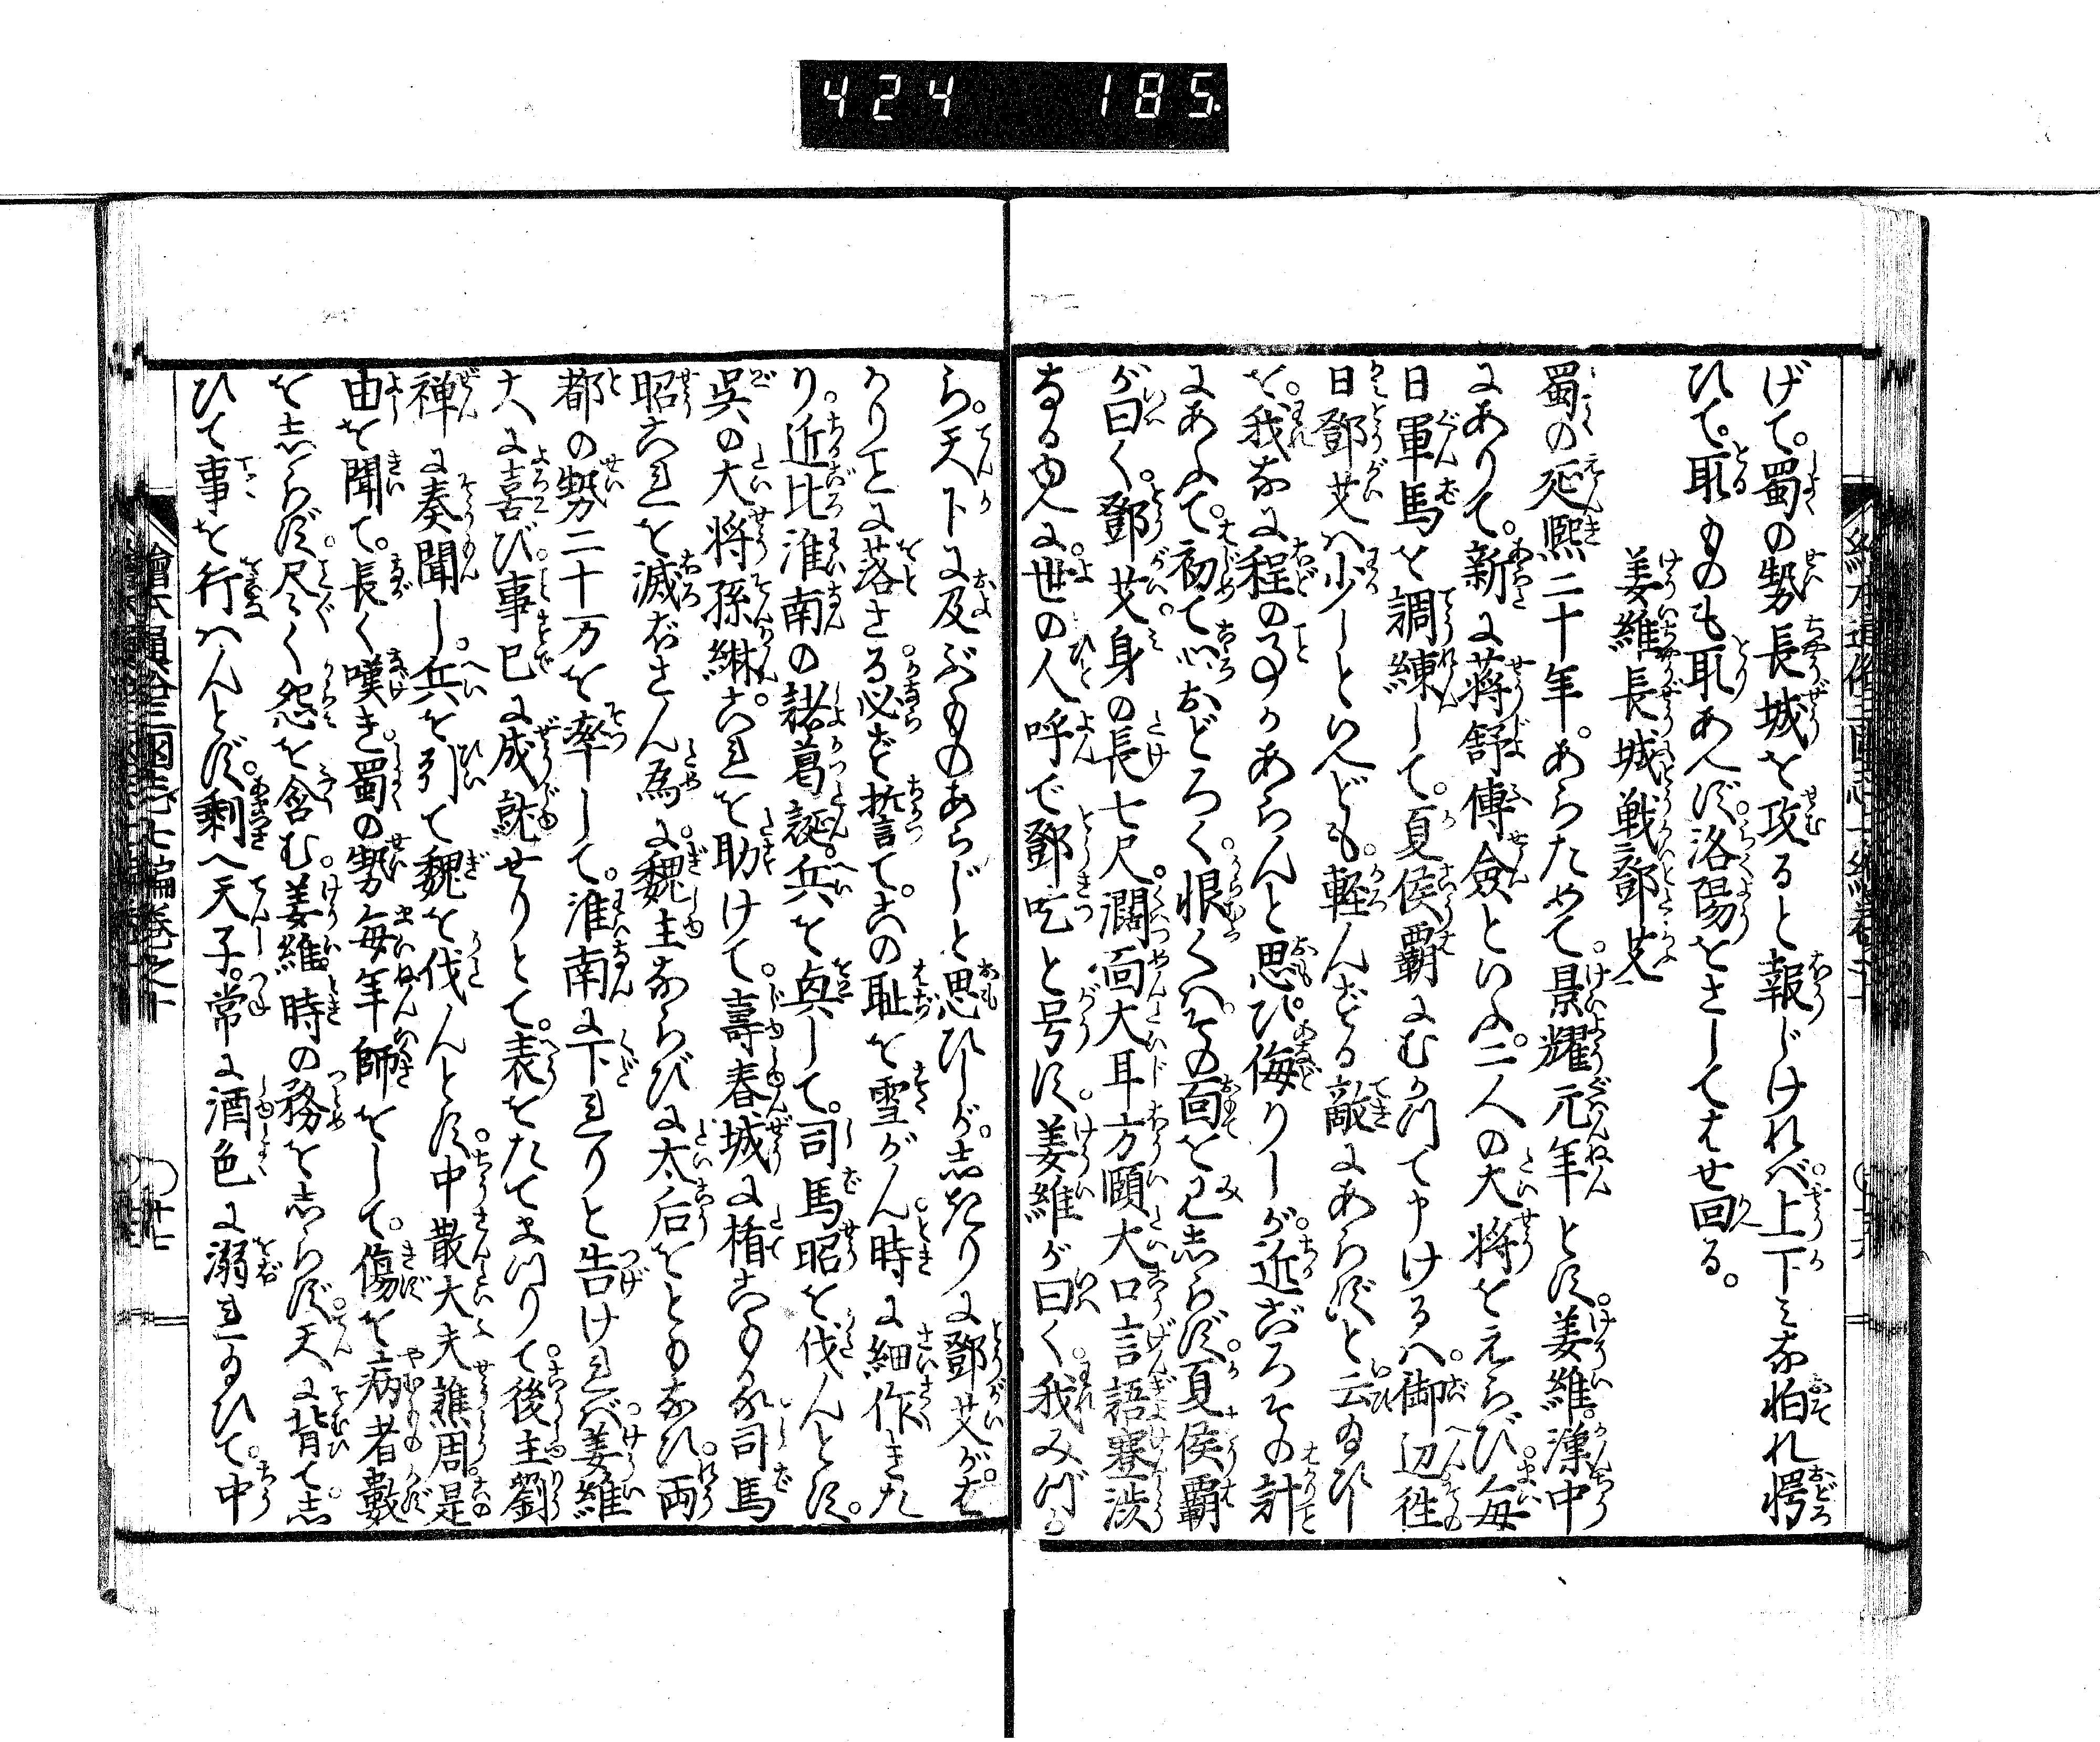 424 185
げて。蜀の勢長城を攻ると報じけれバ。上下ミな怕れ愕
ひて。取ものも取あへず。洛陽をさしてはせ回る。
姜維長城戦鄧艾
蜀の延熙二十年。あらためて。景耀元年とす。姜維。漢中
にありて。新に蒋舒傅僉といふ。二人の大将をえらび。毎
日軍馬を調練して。夏侯覇にむかつて申けるハ。御辺往
日鄧艾ハ少しといへども。軽んずる敵にあらずと云るひし
を。我なに程の事かあらんと思ひ。侮りしが。近ごろその計
にあふて。初て心おどろく。恨くハ。その面を見しらず。夏侯覇
が曰く。鄧艾。身の長七尺。濶面大耳方頤大口言語蹇渋
なるゆへに。世の人呼で鄧吃と号す。姜維が曰く。我みづか
ら。天下に及ぶものあらじと思ひしが。志きりに鄧艾が。は
かりことに落さる。必ず誓て。この耻を雪がん時に。細作きた
り。近比淮南の諸葛誕。兵を起して。司馬昭を伐んとす。
呉の大将孫綝。これを助けて。寿春城に楯こもる。司馬
昭これを滅ぼさん為に。魏主ならびに太后をともなひ。両
都の勢二十万を率して。淮南に下れりと告けれバ。姜維
大に喜び。事已に成就せりとて。表をたてまつりて。後主劉
禅に奏聞し。兵を引て魏を伐んとす。中散大夫譙周。是
由を聞て。長く嘆き。蜀の勢毎年師をして。傷を病者数
を志らず。尽く怨を含む。姜維。時の務を志らず。天に背て。志
ひて事を行ハんとす。剰へ天子。常に酒色に溺れ玉ひて。中